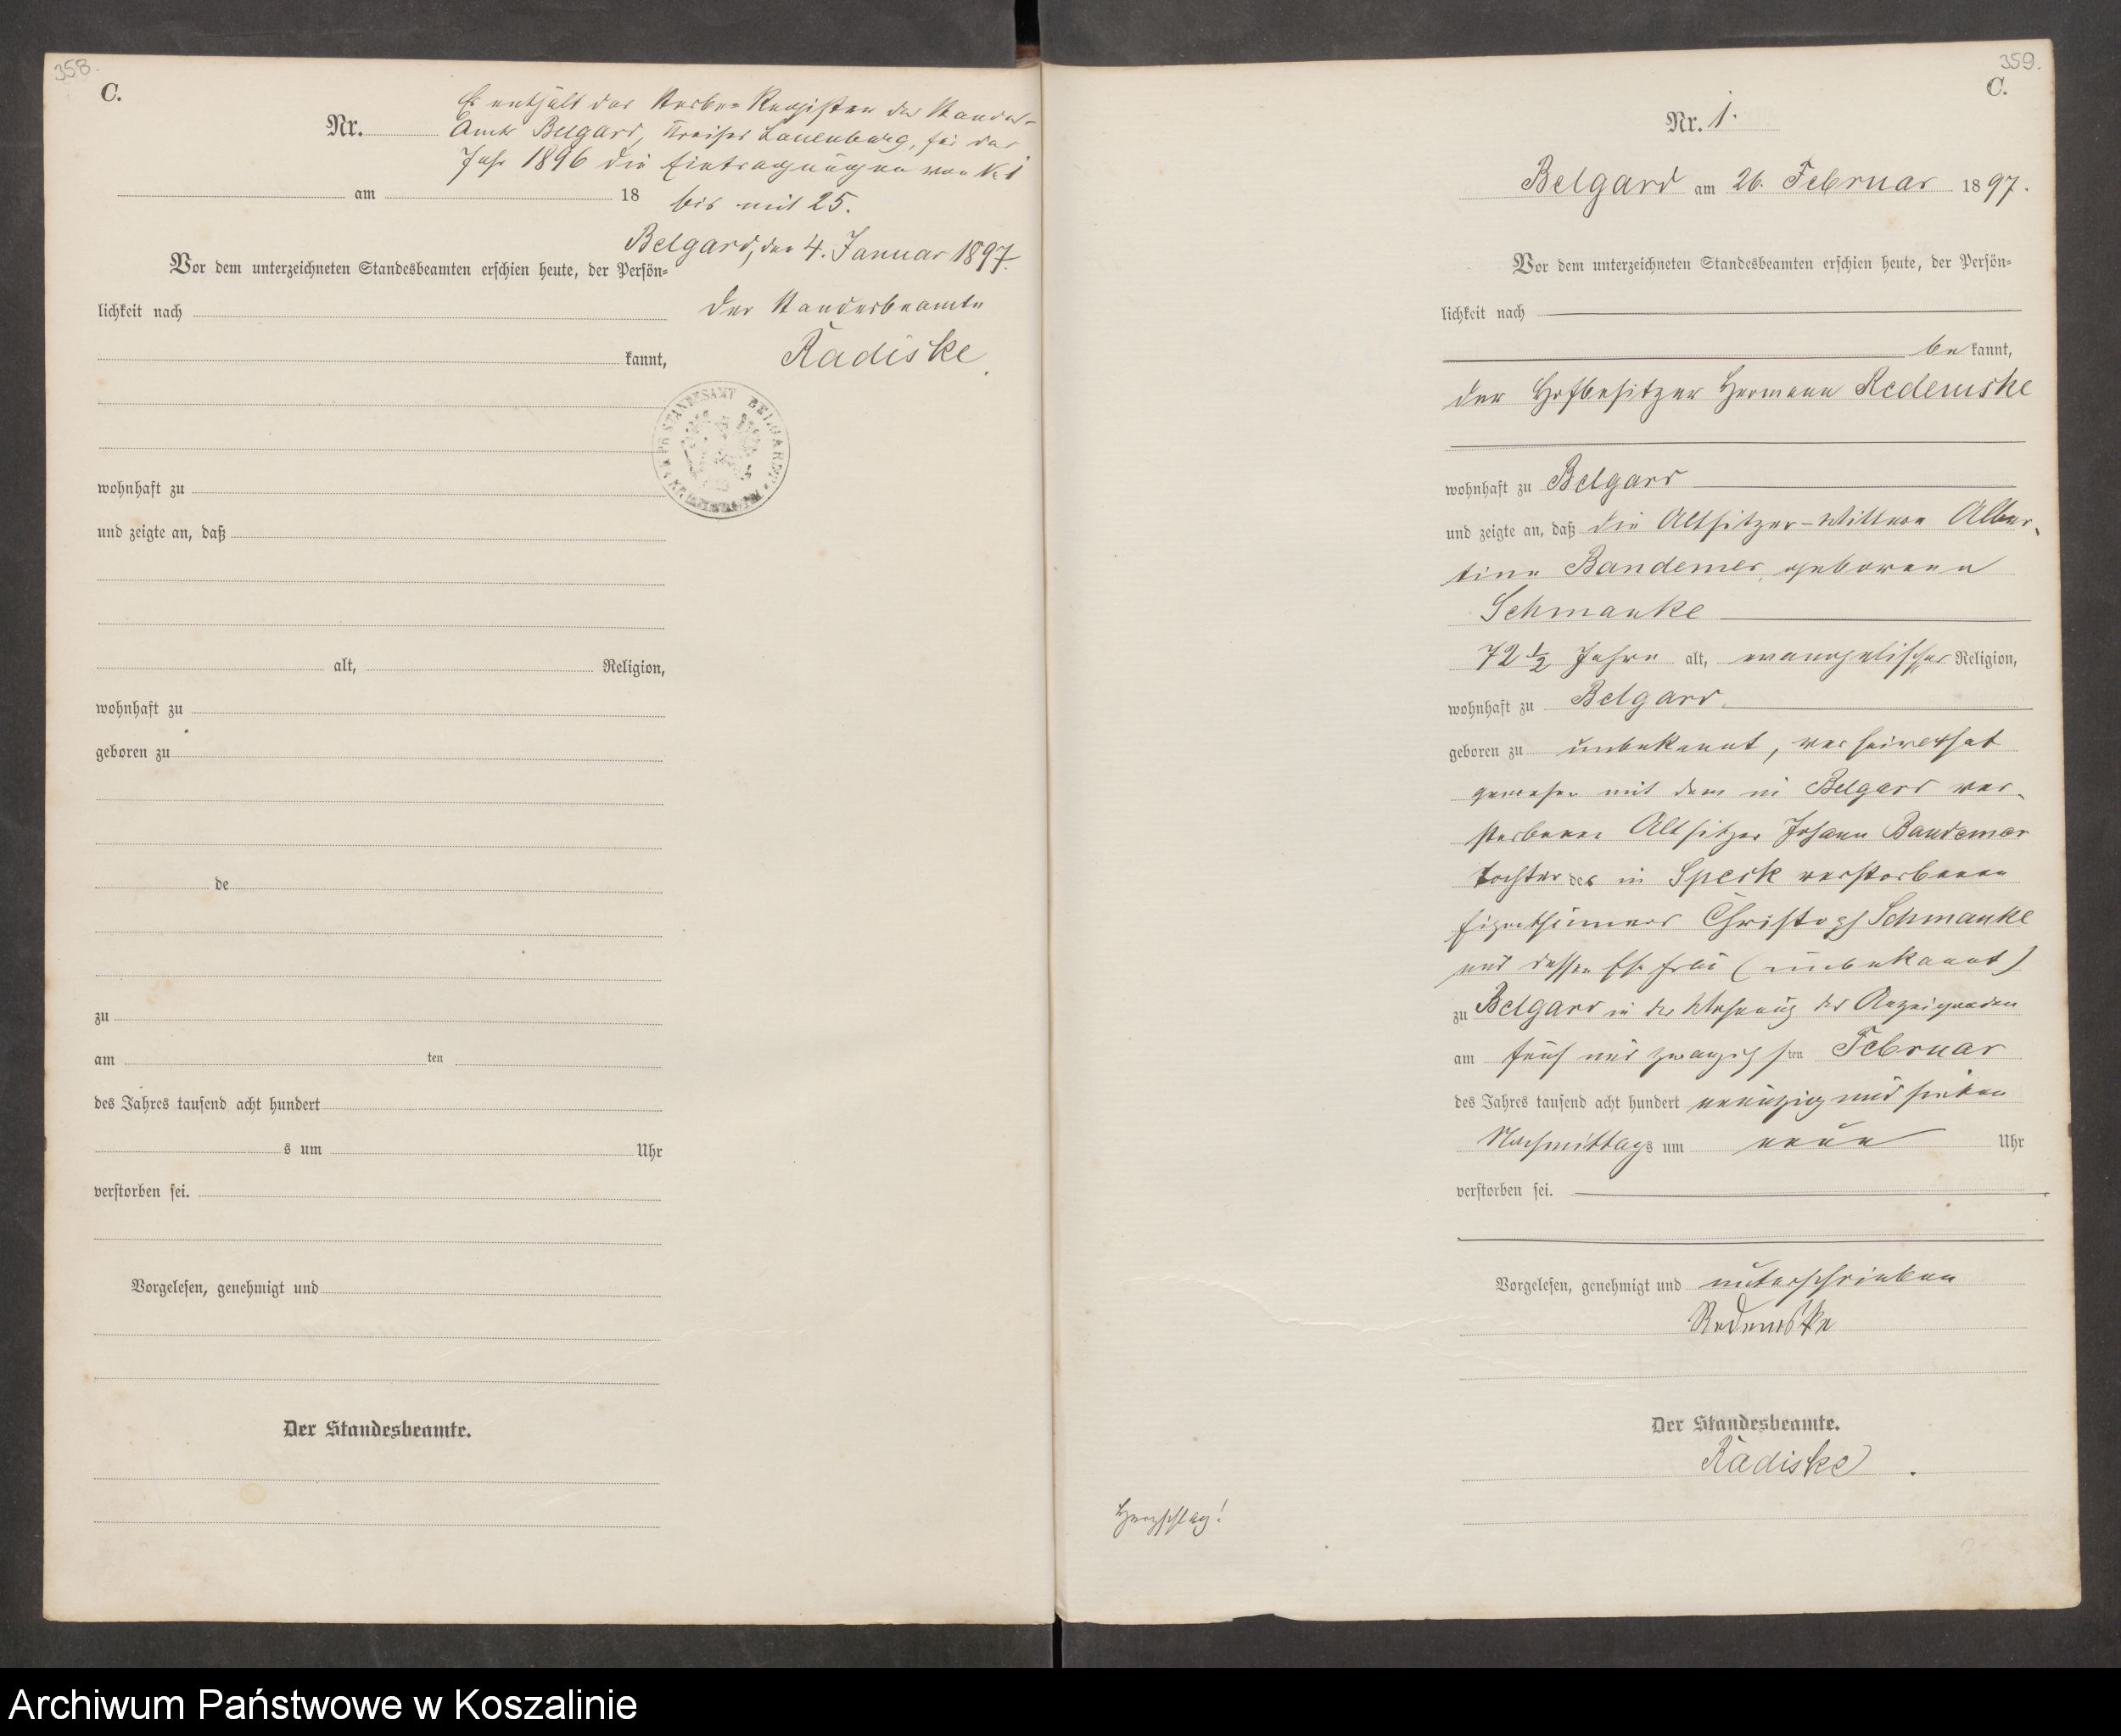 358.
C.
Nr.
Es enthält das Sterbe-Register des Standes-
Amts Belgard, Kreises Lauenburg, für das
Jahr 1896 die Eintragungen von No 1
bis mit 25.
am 18
Belgard, den 4. Januar 1897.
Vor dem unterzeichneten Standesbeamten erschien heute, der Persön=
lichkeit nach
Der Standesbeamte
kannt,
Radiske
STANDESAMT BELGARD
wohnhaft zu
und zeigte an, daß
alt, Religion,
wohnhaft zu
geboren zu
de
zu
am ten
des Jahres tausend acht hundert
s um Uhr
verstorben sei.
Vorgelesen, genehmigt und
Der Standesbeamte.
359.
C.
Nr. 1.
Belgard am 26. Februar 1897.
Vor dem unterzeichneten Standesbeamten erschien heute, der Persön=
lichkeit nach
be kannt,
der Hofbesitzer Hermann Redemske
wohnhaft zu Belgard
und zeigte an, daß die Altsitzer-Wittwe Alber-
tine Bandemer, geborene
Schmanke
72 1/2 Jahre alt, evangelischer Religion,
wohnhaft zu Belgard
geboren zu unbekannt, verheirathet
gewesen mit dem in Belgard ver-
storbenen Altsitzer Johann Bandemer
Tochter des in Speck verstorbenen
Eigenthümers Christoph Schmanke
und dessen Ehefrau (unbekannt)
zu Belgard in der Wohnung des Anzeigenden
am fünf und zwanzigsten Februar
des Jahres tausend acht hundert neunzig und sieben
Nachmittags um neun Uhr
verstorben sei.
Vorgelesen, genehmigt und unterschrieben
Redemske
Der Standesbeamte.
Radiske
Herzschlag!
Archiwum Państwowe w Koszalinie